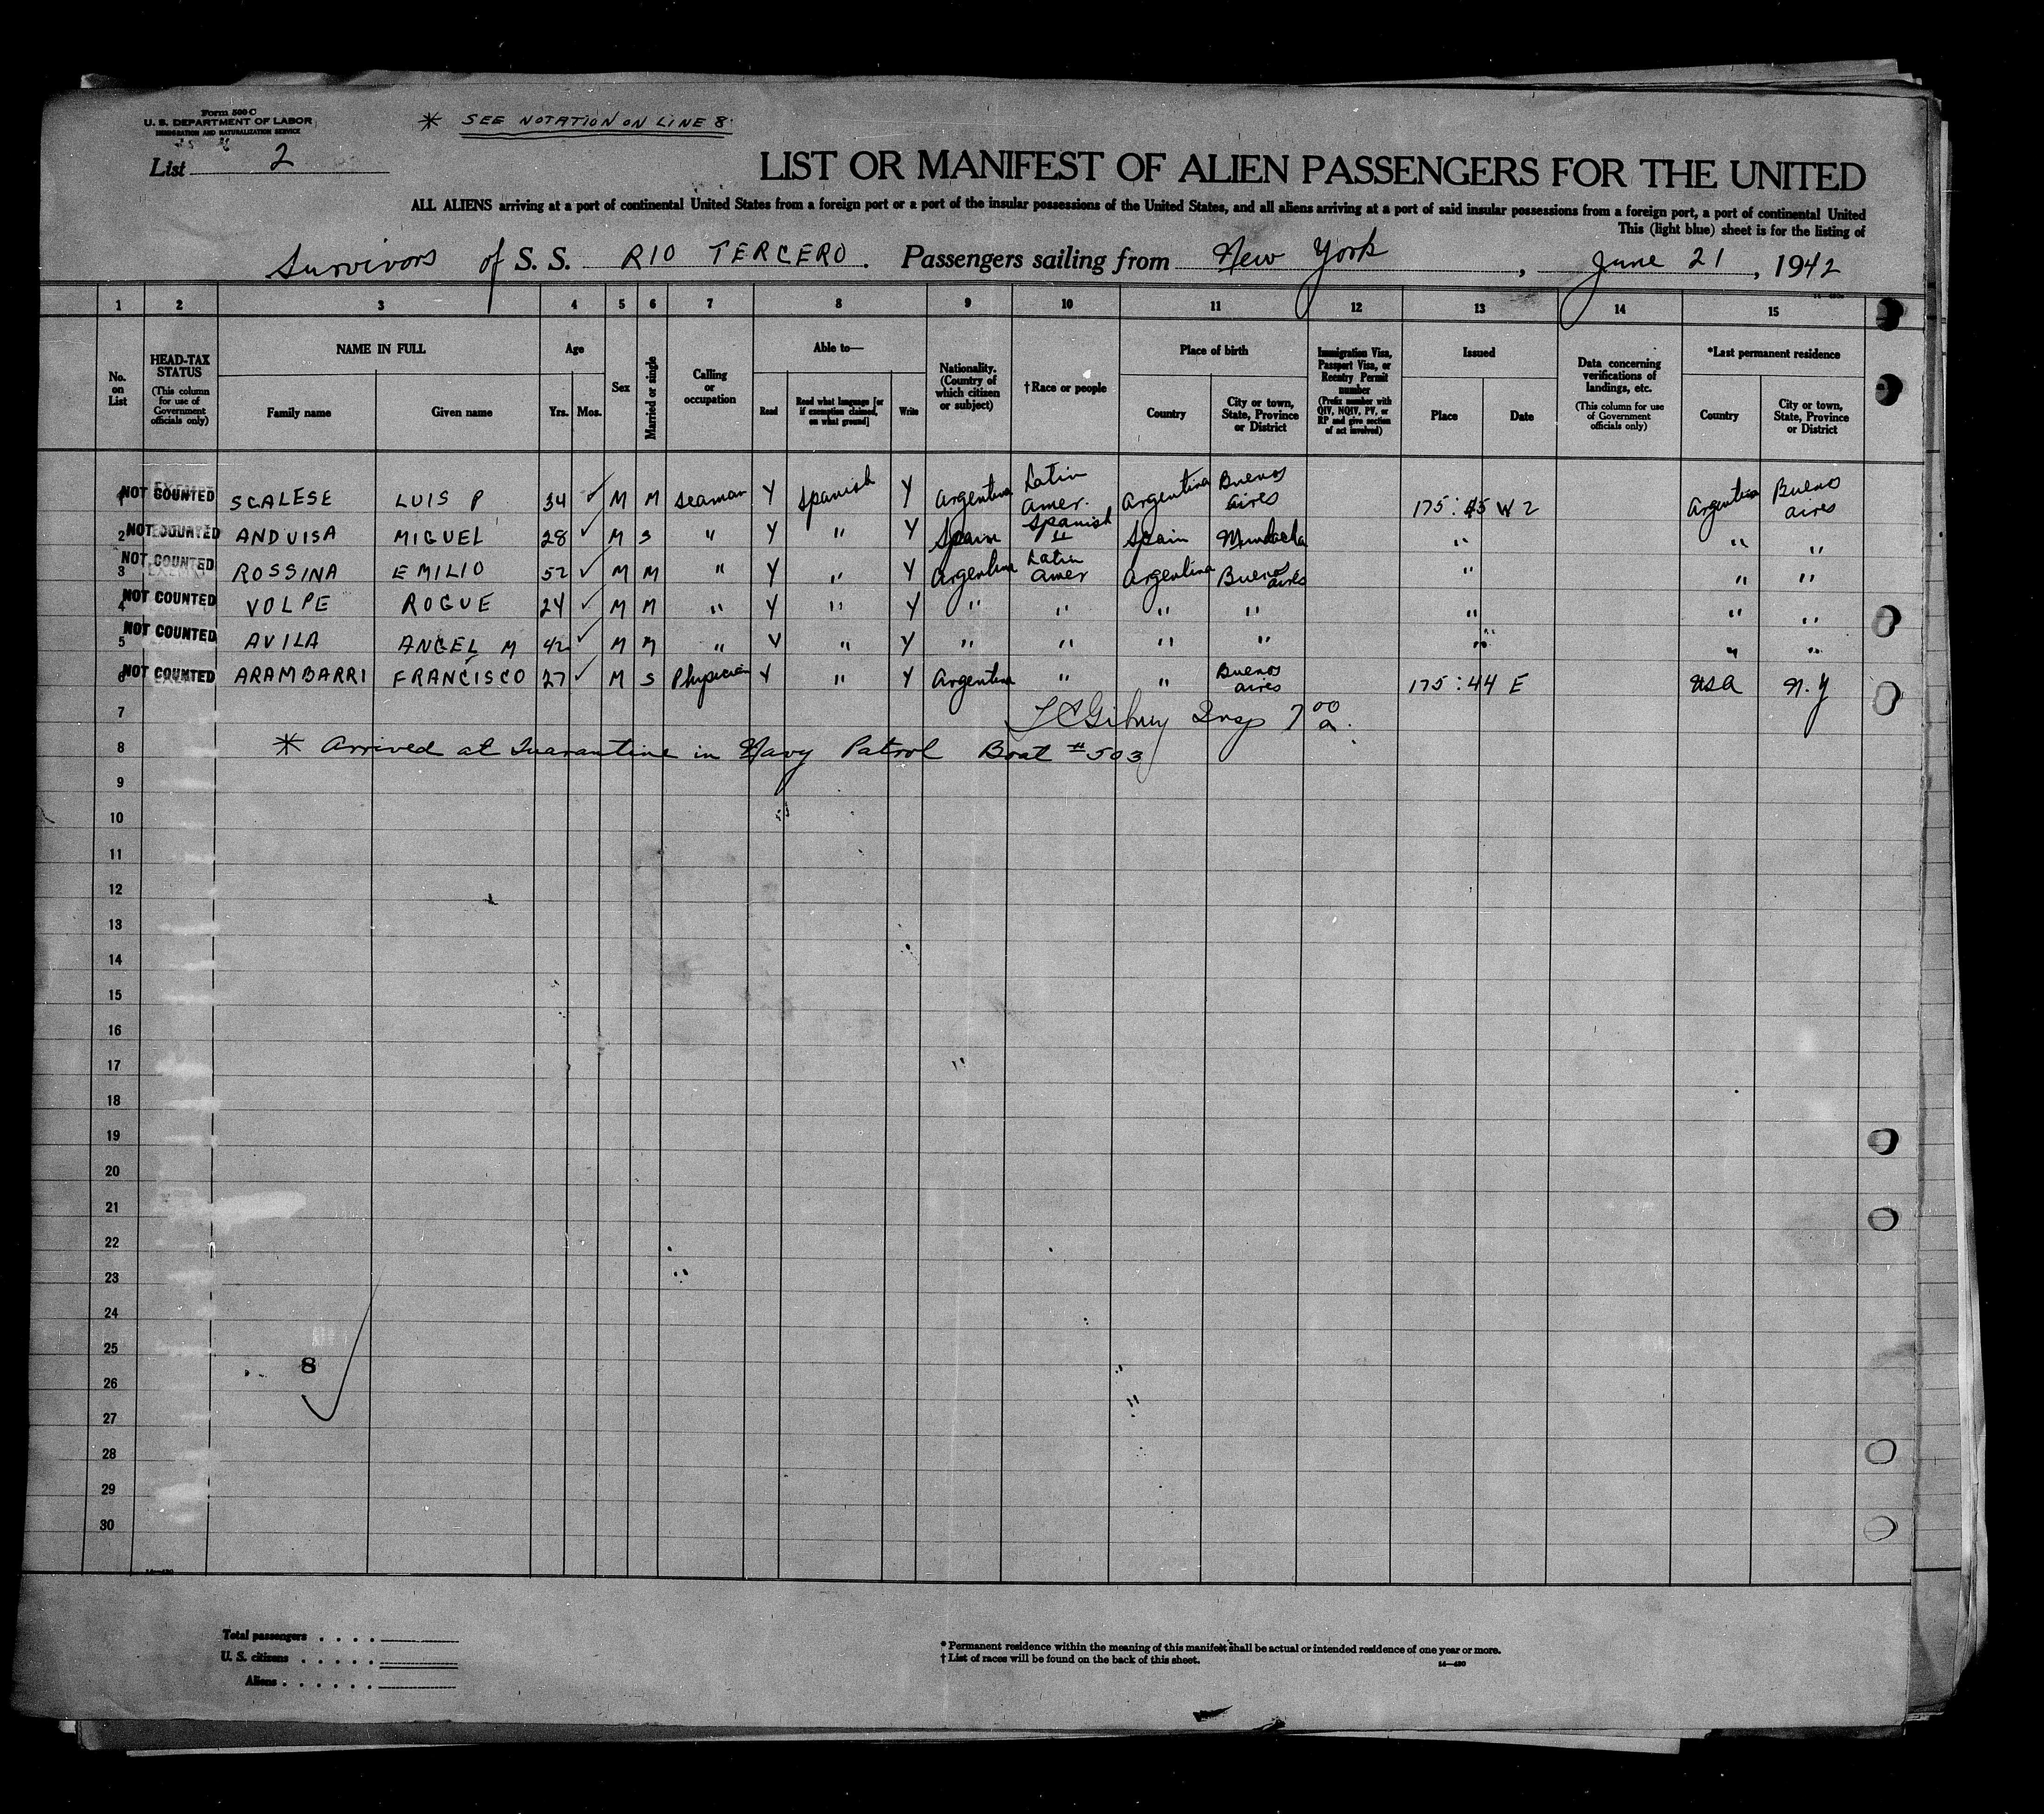 Form 500 C
U. S. DEPARTMENT OF LABOR
IMMIGRATION AND NATURALIZATION SERVICE
* SEE NOTATION ON LINE 8
List 2
LIST OR MANIFEST OF ALIEN PASSENGERS FOR THE UNITED
ALL ALIENS arriving at a port of continental United States from a foreign port or a port of the insular possessions of the United States, and all aliens arriving at a port of said insular possessions from a foreign port, a port of continental United
This (light blue) sheet is for the listing of
Survivors of S. S. RIO TERCERO. Passengers sailing from New York, June 21, 1942
1 2 3 4 5 6 7 8 9 10 11 12 13 14 15
No. on List
HEAD-TAX STATUS (This column for use of Government officials only)
NAME IN FULL
Family name Given name
Age
Yrs. Mos.
Sex
Married or single
Calling or occupation
Able to—
Read Read what language [or if exemption claimed, on what ground] Write
Nationality. (Country of which citizen or subject)
†Race or people
Place of birth
Country City or town, State, Province or District
Immigration Visa, Passport Visa, or Reentry Permit number (Prefix number with QIV, NQIV, PV, or RP and give section of act involved)
Issued
Place Date
Data concerning verifications of landings, etc. (This column for use of Government officials only)
*Last permanent residence
Country City or town, State, Province or District
1 NOT COUNTED SCALESE LUIS P 34 ✓ M M Seaman Y Spanish Y Argentina Latin Amer. Argentina Buenos Aires 175:45 W 2 Argentina Buenos Aires
2 NOT COUNTED ANDUISA MIGUEL 28 ✓ M S " Y " Y Spain Spanish " Spain " " "
3 NOT COUNTED ROSSINA EMILIO 52 ✓ M M " Y " Y Argentina Latin Amer Argentina Buenos Aires " " "
4 NOT COUNTED VOLPE ROGUE 24 ✓ M M " Y " Y " " " " " " "
5 NOT COUNTED AVILA ANGEL M 42 ✓ M M " Y " Y " " " " " " "
6 NOT COUNTED ARAMBARRI FRANCISCO 27 ✓ M S Physician Y " Y Argentina " " Buenos Aires 175:44 E USA N.Y
7 Insp 7 00 a.
8 * Arrived at Quarantine in Navy Patrol Boat #503
9
10
11
12
13
14
15
16
17 "
18
19
20
21
22
23
24
25
8
26
27
28
29
30
14—430
Total passengers . . . .
U. S. citizens . . . . .
Aliens . . . . . .
* Permanent residence within the meaning of this manifest shall be actual or intended residence of one year or more.
† List of races will be found on the back of this sheet.
14—430